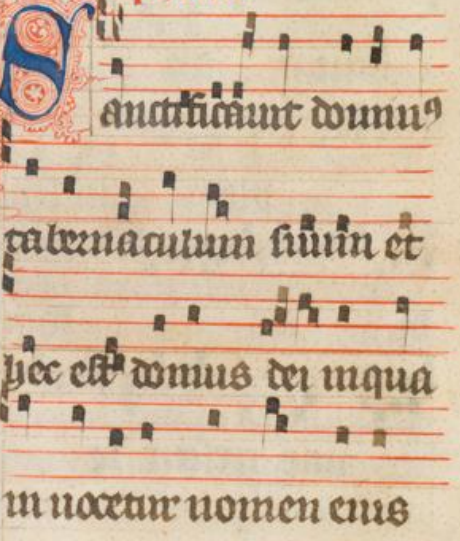 Sanctificauit dominus
tabernaculum suum et
hec est domus dei in qua
in uocetur nomen eius